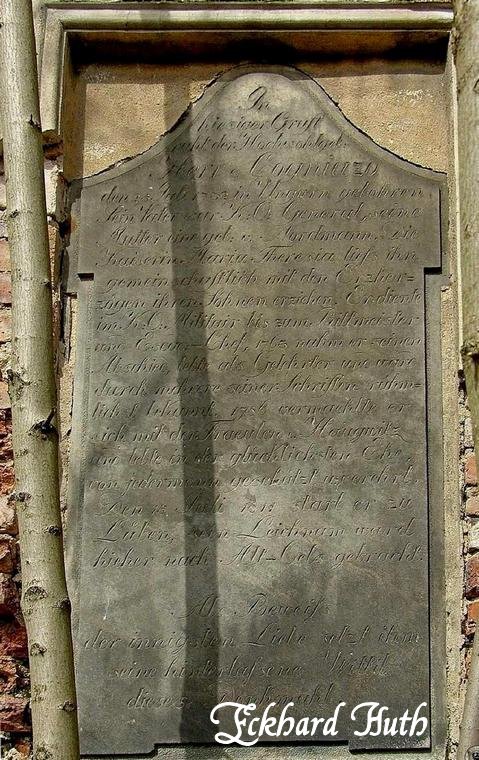 In
hiesiger Gruft
ruht der Hochwohlgeb.
Herr v.
den in Ungarn gebohren
Sein Vater war K. O. General, seine
Mutter eine geb. v. Nordmann. Die
Kaiserin Maria Theresia ließ ihn
gemeinschaftlich mit den Erzher-
zögen ihren Söhnen erziehen. Er diente
im K. O. Militair bis zum Rittmeister
und Chef, 1763 nahm er seinen
Abschied, lebte als Gelehrter und ward
durch mehrere seiner Schriften rühm-
lichst bekannt. vermaehlte er
sich mit der Fraeulen v. Haugwitz
und lebte in der glücklichsten Ehe,
von jedermann geschätzt u. verehrt.
Den starb er zu
Lüben, sein Leichnam ward
hieher nach Alt-Oels gebracht.
Als Beweiß
der innigsten Liebe setzt ihm
seine hinterlaßene Wittib
dieses Denkmahl.
Eckhard Huth